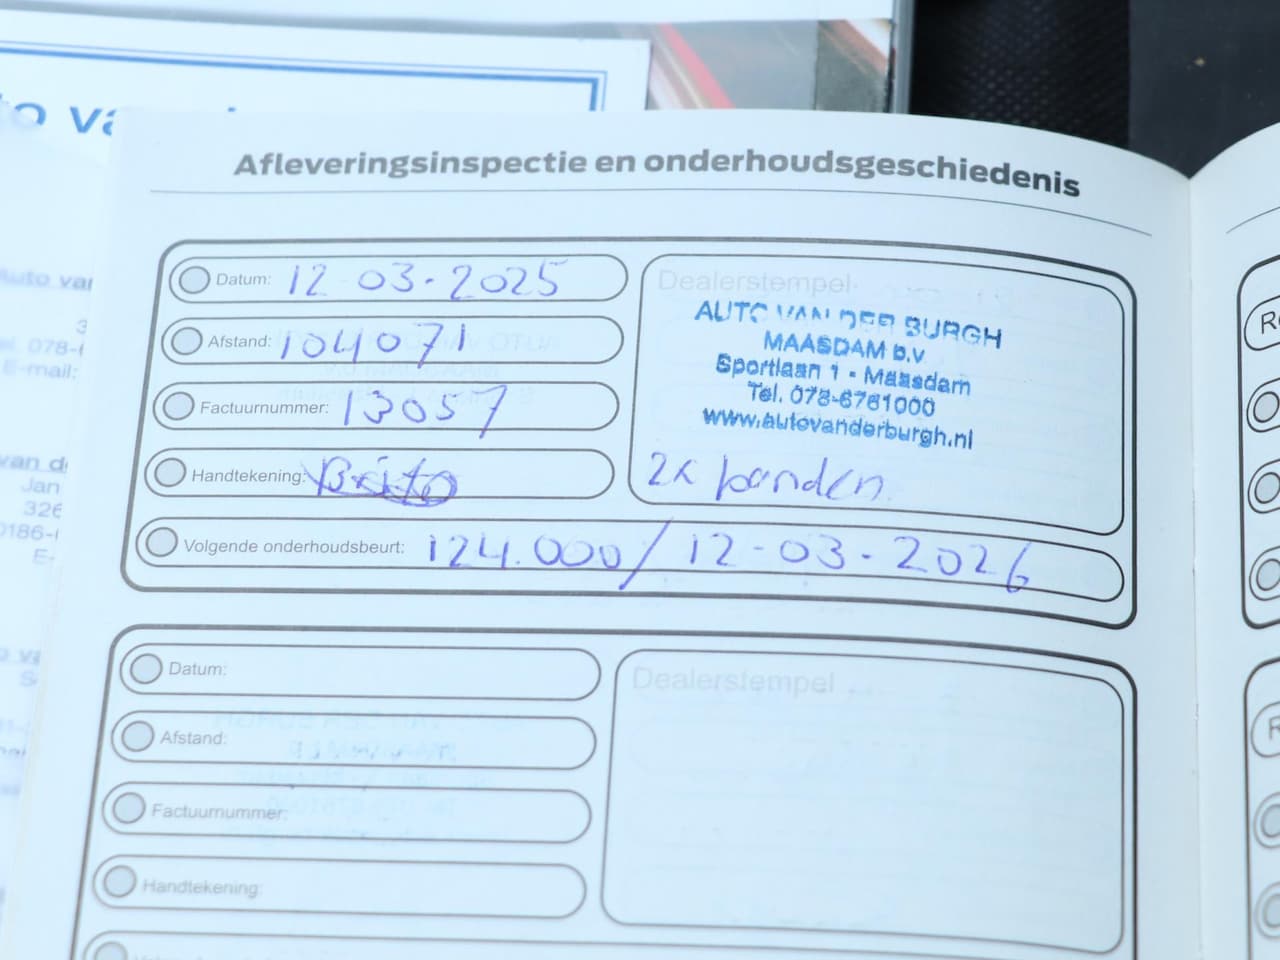 Afleveringsinspectie en onderhoudsgeschiedenis
Datum: 12-03-2025
Afstand: 104071
Factuurnummer: 13057
Handtekening:
Dealerstempel
AUTO VAN DER BURGH
MAASDAM b.v.
Sportlaan 1 - Maasdam
Tel. 078-6761000
www.autovanderburgh.nl
2x banden
Volgende onderhoudsbeurt: 124.000/12-03-2026
Datum:
Afstand:
Factuurnummer:
Handtekening:
Dealerstempel
Auto van
078-
E-mail:
van d
Jan
326
0186-
E-